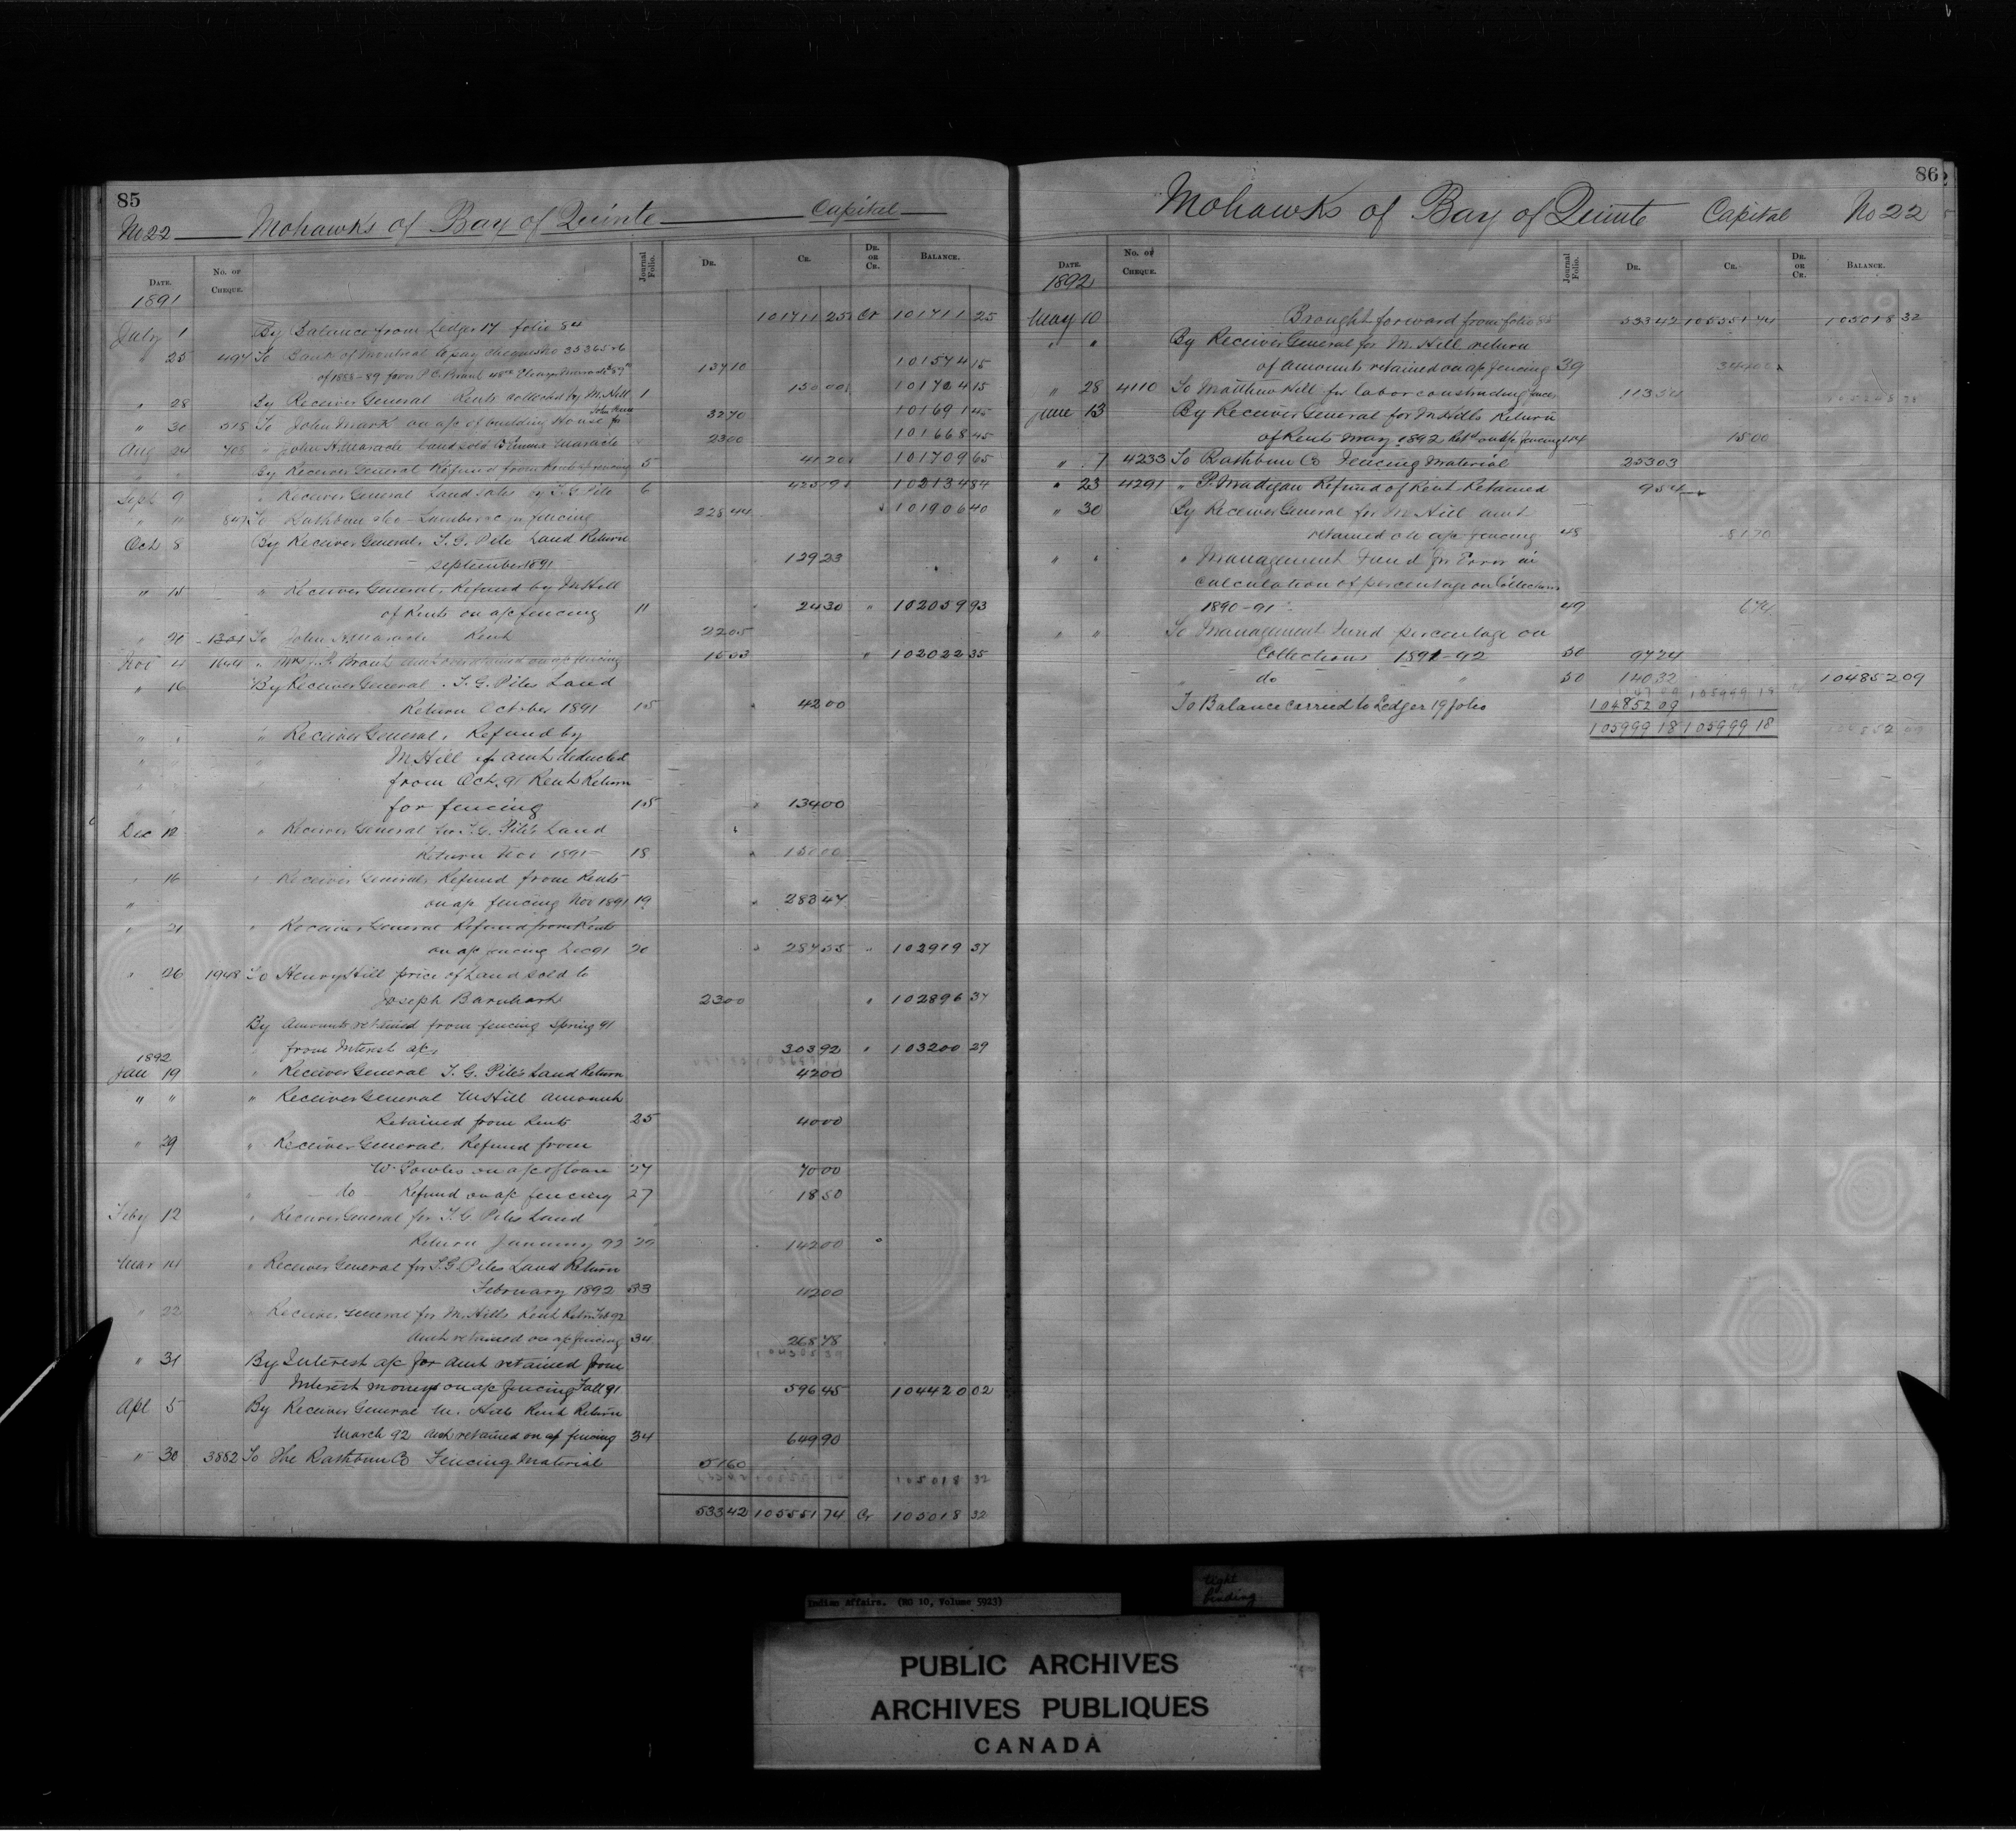 85
No 22 Mohawks of Bay of Quinte Capital
DATE. No. OF CHEQUE. Journal Folio. DR. CR. DR. OR CR. BALANCE.
1891
July 1 By Balance from Ledger 17 folio 84 101711 25 Cr 101711 25
" 25 494 To Bank of Montreal to pay cheques No
of 1888-89 137 10 101574 15
" 28 By Receiver General Rents collected by M. Hill 1 150 00 101724 15
" 30 518 To John Mark on a/c of building House for 32 70 101691 45
Aug 24 708 " John H. Maracle Land sold Maracle 23 00 101668 45
" " By Receiver General Refund from Rents fencing 5 41 20 101709 65
Sept 9 " Receiver General Land Sales by T. G. Pile 6 425 19 102134 84
" " 847 To Rathbun & Co Lumber &c for fencing 228 44 101906 40
Oct 8 By Receiver General. T. G. Pile Land Return
September 1891 129 23
" 14 " Receiver General. Refund by M Hill
of Rents on a/c fencing 11 24 30 " 102059 93
" 20 1301 To John Maracle Rent 22 05
Nov 4 1644 " Brant on a/c fencing 15 53 " 102022 35
" 16 By Receiver General. T. G. Piles Land
Return October 1891 15 42 00
" " " Receiver General. Refund by
M Hill of amt deducted
from Oct. 91 Rent Return
for fencing 15 134 00
Dec 12 " Receiver General for T. G. Pile's Land
Return Nov 1891 18 150 00
" 16 " Receiver General. Refund from Rents
on a/c fencing Nov 1891 19 283 47
" 21 " Receiver General Refund from Rents
on a/c fencing Dec 91 20 287 55 " 102919 37
" 26 1948 To Henry Hill price of Land sold to
Joseph Barnhart 23 00 " 102896 37
By Amounts retained from fencing Spring 91
from Interest a/c 303 92 " 103200 29
1892
Jan 19 " Receiver General T. G. Pile's Land Return 42 00
" " " Receiver General M Hill amount
Retained from Rents 25 40 00
" 29 " Receiver General. Refund from
W. Powles on a/c of loan 27 70 00
" — do — Refund on a/c fencing 27 18 50
Feby 12 " Receiver General for T. G. Piles Land
Return January 92 29 142 00
Mar 14 " Receiver General for T. G. Piles Land Return
February 1892 33 42 00
" 22 " Receiver General for M. Hills Rent Retn Feb 92
Amt retained on a/c fencing 34 268 78
" 31 By Interest a/c for amt retained from
Interest moneys on a/c fencing Fall 91 596 45 104420 02
Apl 5 By Receiver General M. Hills Rent Return
March 92 Amt retained on a/c fencing 34 649 90
" 30 3882 To The Rathbun Co Fencing Material 51 60
105018 32
533 42 105551 74 Cr 105018 32
86
Mohawks of Bay of Quinte Capital No 22
DATE. No. of CHEQUE. Journal Folio. DR. CR. DR. OR CR. BALANCE.
1892
May 10 Brought forward from folio 85 533 42 105551 74 105018 32
" " By Receiver General for M. Hill return
of amounts retained on a/c fencing 39 344 00
" 28 4110 To Matthew Hill for labor constructing fences 113 54
June 13 By Receiver General for M Hills Return
of Rents May 1892 Retd on a/c fencing 44 15 00
" 7 4233 To Rathbun Co Fencing Material 253 03
" 23 4291 " P. Madigan Refund of Rent Retained 9 54
" 30 By Receiver General for M Hill amt
retained on a/c fencing 48 81 70
" " " Management Fund for Error in
calculation of percentage on Collections
1890-91 49 6 74
" " To Management Fund percentage on
Collections 1891-92 50 97 24
" do " 50 140 32 104852 09
To Balance carried to Ledger 19 folio 104852 09
105999 18 105999 18
Indian Affairs. (RG 10, Volume 5923)
tight
binding
PUBLIC ARCHIVES
ARCHIVES PUBLIQUES
CANADA